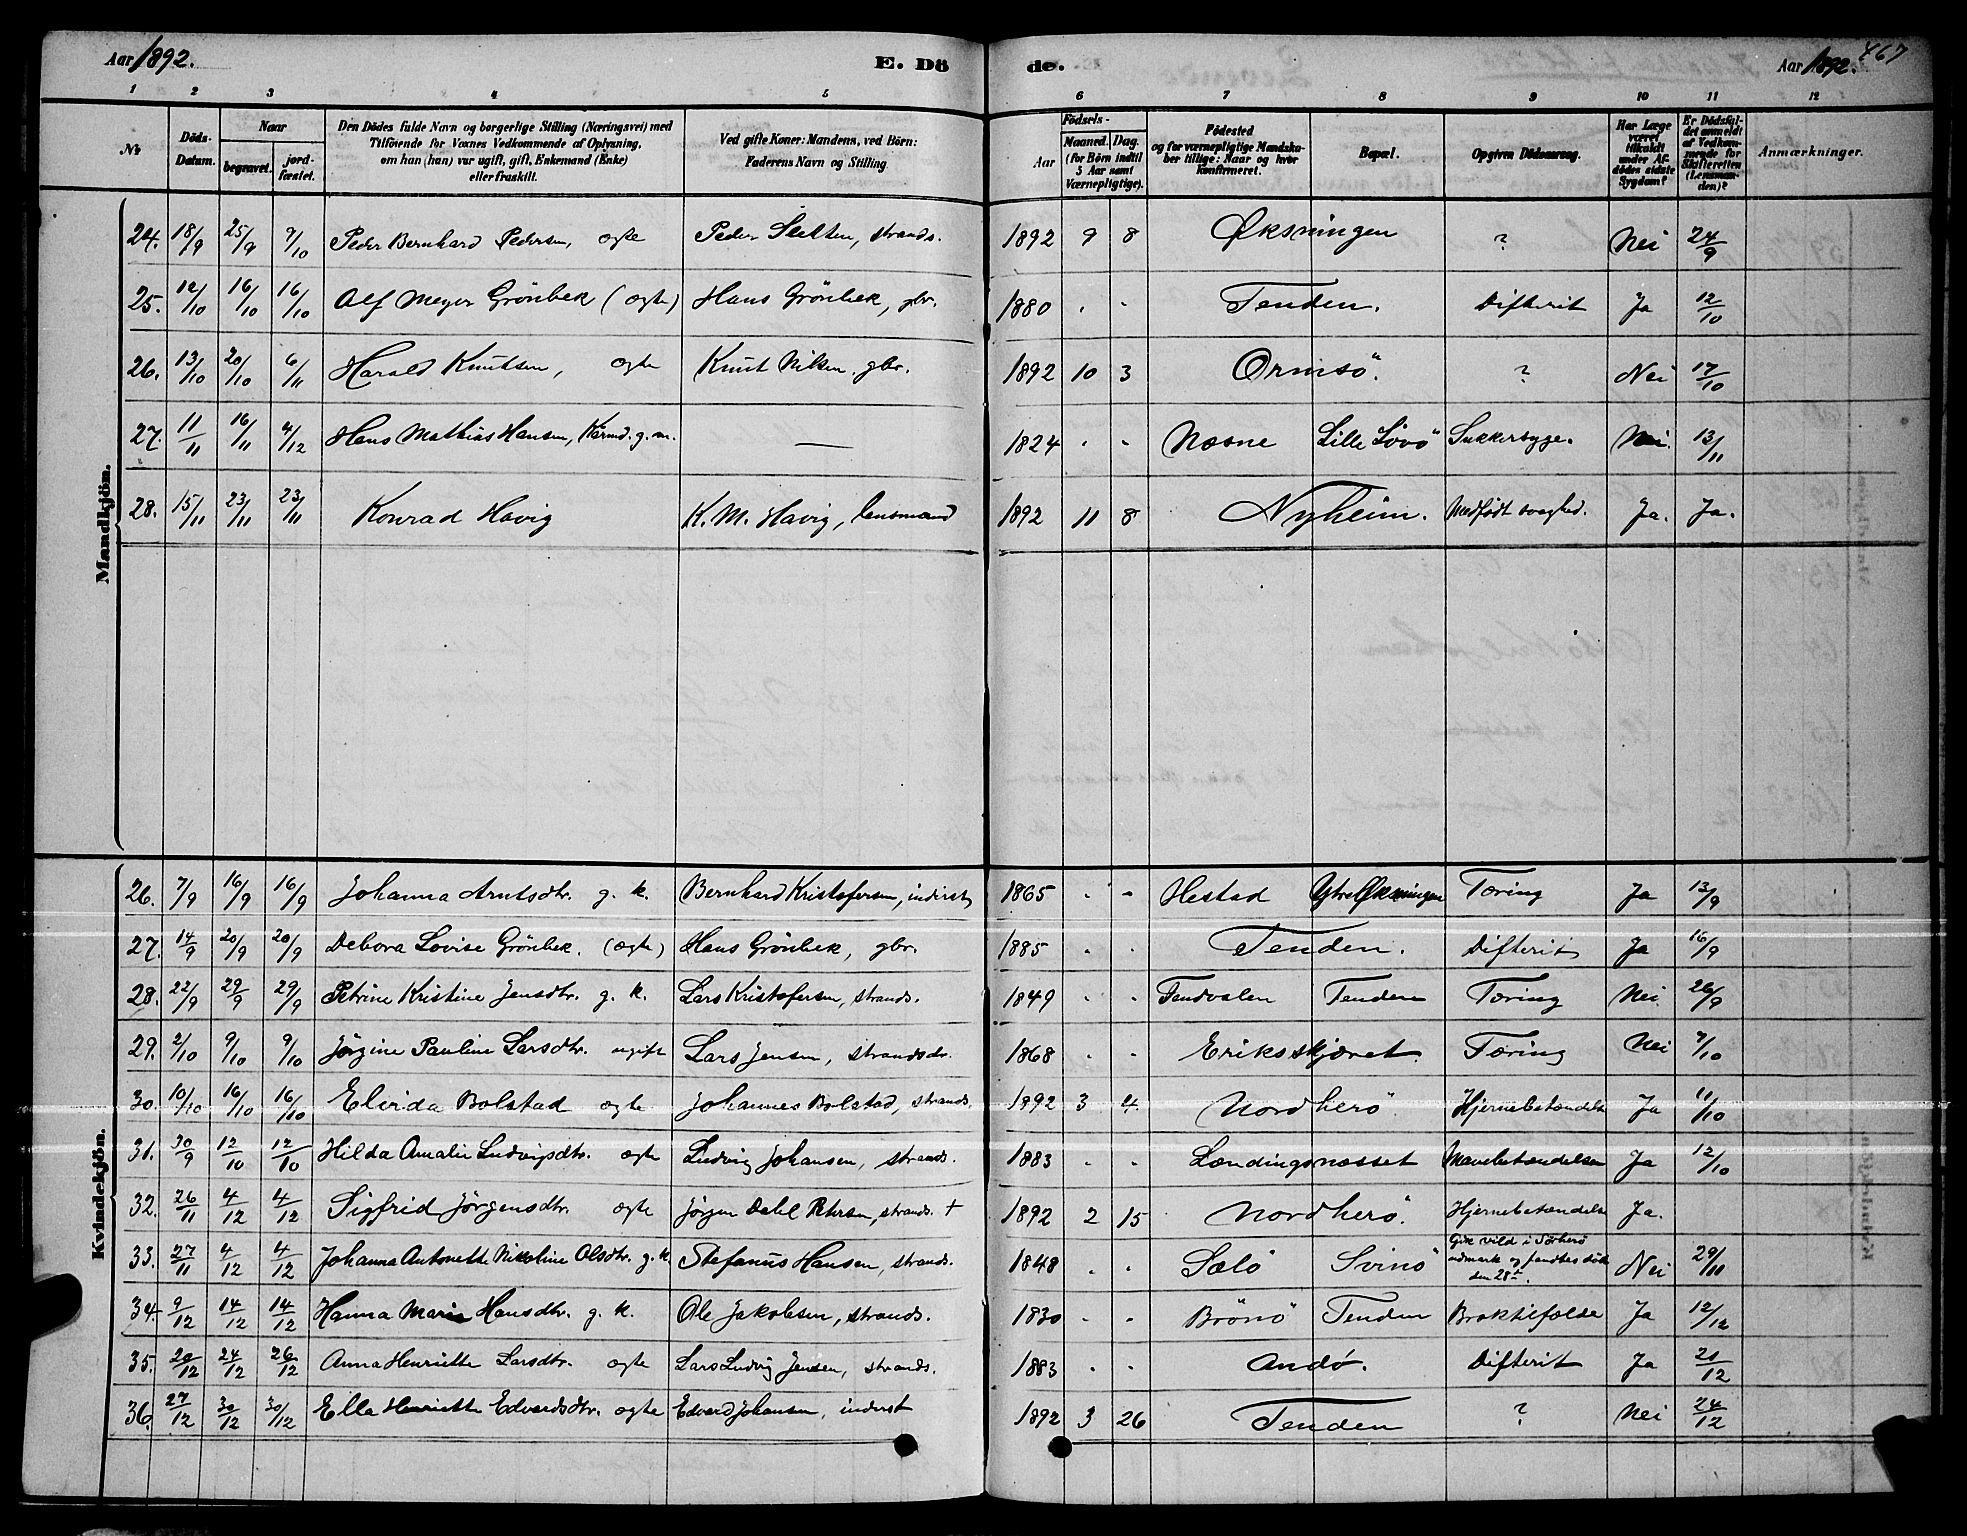 Aar 1892. E. Dö de. Aar 1892. 467
1 2 3 4 5 6 7 8 9 10 11 12
No Döds-Datum. Naar begravet. jordfæstet. Den Dödes fulde Navn og borgerlige Stilling (Næringsvei) med Tilföiende for Voxnes Vedkommende af Oplysning, om han (hun) var ugift, gift, Enkemand (Enke) eller fraskilt. Ved gifte Koner: Mandens, ved Börn: Faderens Navn og Stilling. Födsels- Aar Maaned. Dag. (for Börn indtil 5 Aar samt Værnepligtige). Födested og for værnepligtige Mandskaber tillige: Naar og hvor konfirmeret. Bopæl. Opgiven Dödsaarsag. Har Læge været tilkaldt under Afdödes sidste Sygdom? Er Dödsfaldet anmeldt af Vedkommende for Skifteretten (Lensmanden)? Anmærkninger.
Mandkjön.
24. 18/9 25/9 9/10 Peder Bernhard Pedersen, ægte Peder Sletten, strands. 1892 9 8 Øksningen ? Nei 24/9
25. 12/10 16/10 16/10 Alf Meyer Grönbek (ægte) Hans Grönbek, gbr. 1880 " " Tenden. Difterit Ja 12/10
26. 13/10 20/10 6/11 Harald Knutsen, ægte Knut Nilsen, gbr. 1892 10 3 Ormsö. ? Nei 17/10
27. 11/11 16/11 4/12 Hans Mathias Hansen, Kårmd. g. m. — 1824 " " Næsne Lille Lövö Sukkersyge. Nei. 13/11
28. 15/11 23/11 23/11 Konrad Havig K. M. Havig, lensmand 1892 11 8 Nyheim. Medfødt svaghed. Ja. Ja.
Kvindekjön.
26. 7/9 16/9 16/9 Johanna Arntsdtr. g. k. Bernhard Kristofersen, inderst 1865 " " Hestad Ytre Øksningen Tæring Ja 13/9
27. 14/9 20/9 20/9 Debora Lovise Grönbek. (ægte) Hans Grönbek, gbr. 1885 " " Tenden. Difterit Ja 16/9
28. 22/9 29/9 29/9 Petrine Kristine Jensdtr. g. k. Lars Kristofersen, strands. 1849 " " Tendvalen Tenden Tæring Nei 26/9
29. 2/10 9/10 9/10 Jørgine Pauline Larsdtr. ugift Lars Jensen, strandsdr. 1868 " " Eriksskjæret. Tæring Nei 7/10
30. 10/10 16/10 16/10 Elvida Bolstad ægte Johannes Bolstad, strands. 1892 3 4 Nordherö. Hjernebetændelse Ja 11/10
31. 30/9 12/10 12/10 Hilda Amalie Ludvigsdtr. ægte Ludvig Johansen, strands. 1883 " " Lændingsnæsset Mavebetændelse Ja 12/10
32. 26/11 4/12 4/12 Sigfrid Jörgensdtr. ægte Jörgen Dahl Petersen, strands. + 1892 2 15 Nordherö. Hjernebetændelse Ja.
33. 27/11 4/12 4/12 Johanna Antonette Nikoline Olsdtr. g. k. Stefanus Hansen, strands. 1848 " " Sælö Svinö Gik vild i Sörherö udmark og fandtes död den 28de. Nei 29/11
34. 9/12 14/12 14/12 Hanna Marie Hansdtr. g. k. Ole Jakobsen, strands. 1830 " " Brönö Tenden Braktilfælde Ja 12/12
35. 20/12 24/12 26/12 Anna Henriette Larsdtr. ægte Lars Ludvig Jensen, strands. 1883 " " Andö. Difterit Ja 21/12
36. 27/12 30/12 30/12 Ella Henriette Edvardsdtr. ægte Edvard Johansen, inderst 1892 3 26 Tenden ? Nei 24/12